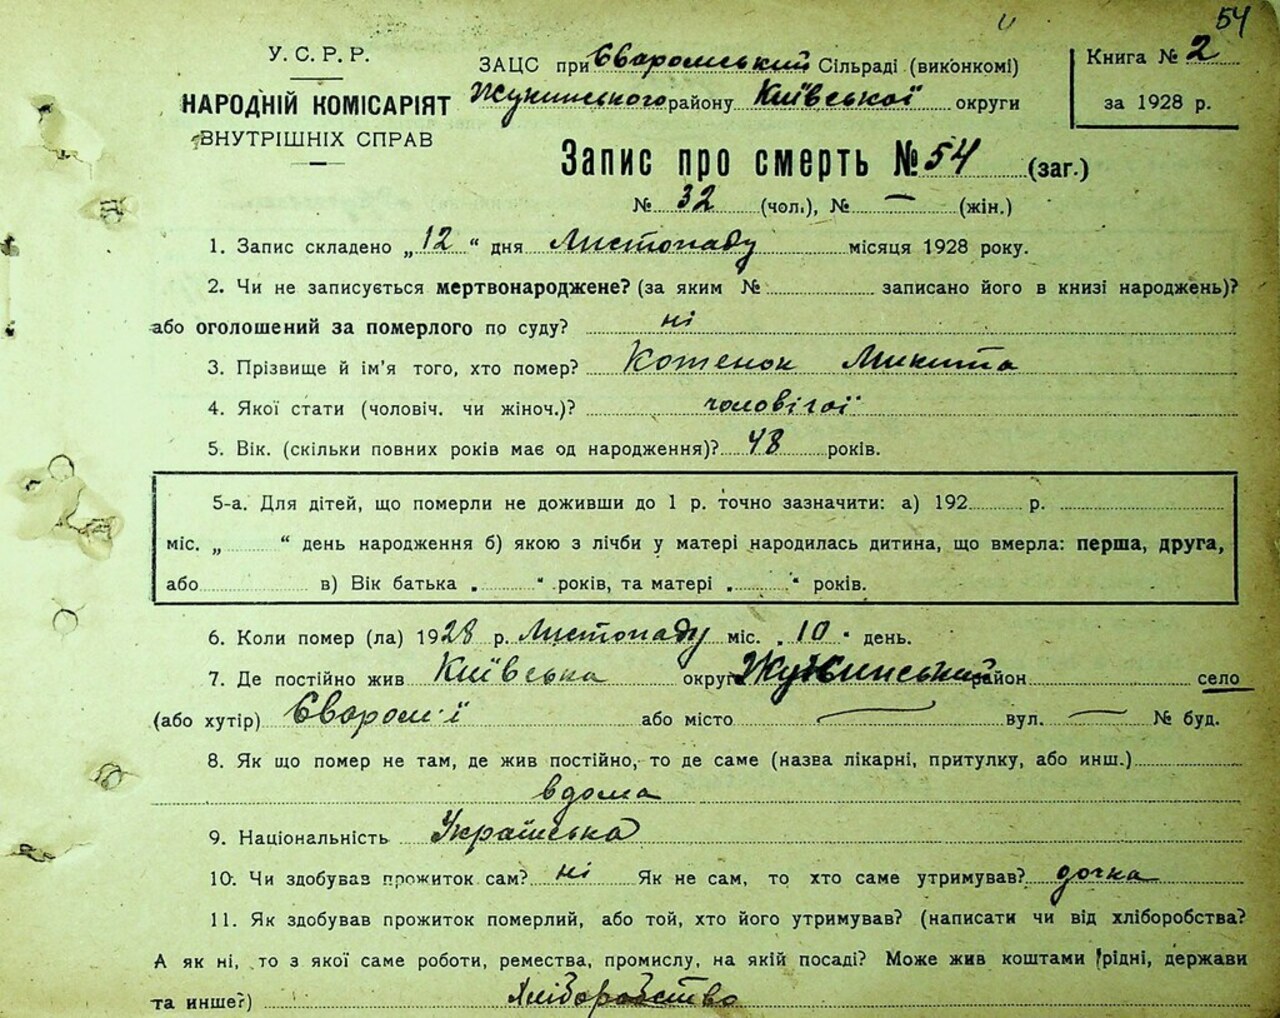 54
У.С.Р.Р.
НАРОДНІЙ КОМІСАРІЯТ
ВНУТРІШНІХ СПРАВ
ЗАЦС при Єваромський Сільраді (виконкомі)
Жукинського району Київської округи
Книга № 2
за 1928 р.
Запис про смерть № 54 (заг.)
№ 32 (чол.), № — (жін.)
1. Запис складено „12“ дня Листопаду місяця 1928 року.
2. Чи не записується мертвонароджене? (за яким № записано його в книзі народжень)?
або оголошений за померлого по суду? ні
3. Прізвище й ім'я того, хто помер? Котенок Микита
4. Якої стати (чоловіч. чи жіноч.)? чоловічої
5. Вік. (скільки повних років має од народження)? 48 років.
5-а. Для дітей, що померли не доживши до 1 р. точно зазначити: а) 192 р.
міс. „ “ день народження б) якою з лічби у матері народилась дитина, що вмерла: перша, друга,
або в) Вік батька „ “ років, та матері „ “ років.
6. Коли помер (ла) 1928 р. Листопаду міс. „10“ день.
7. Де постійно жив Київська округа Жукинський район село
(або хутір) Єваром'ї або місто — вул. — № буд.
8. Як що помер не там, де жив постійно, то де саме (назва лікарні, притулку, або инш.)
вдома
9. Національність Українська
10. Чи здобував прожиток сам? ні Як не сам, то хто саме утримував? дочка
11. Як здобував прожиток померлий, або той, хто його утримував? (написати чи від хліборобства?
А як ні, то з якої саме роботи, ремества, промислу, на якій посаді? Може жив коштами рідні, держави
та инше?) Хліборобство